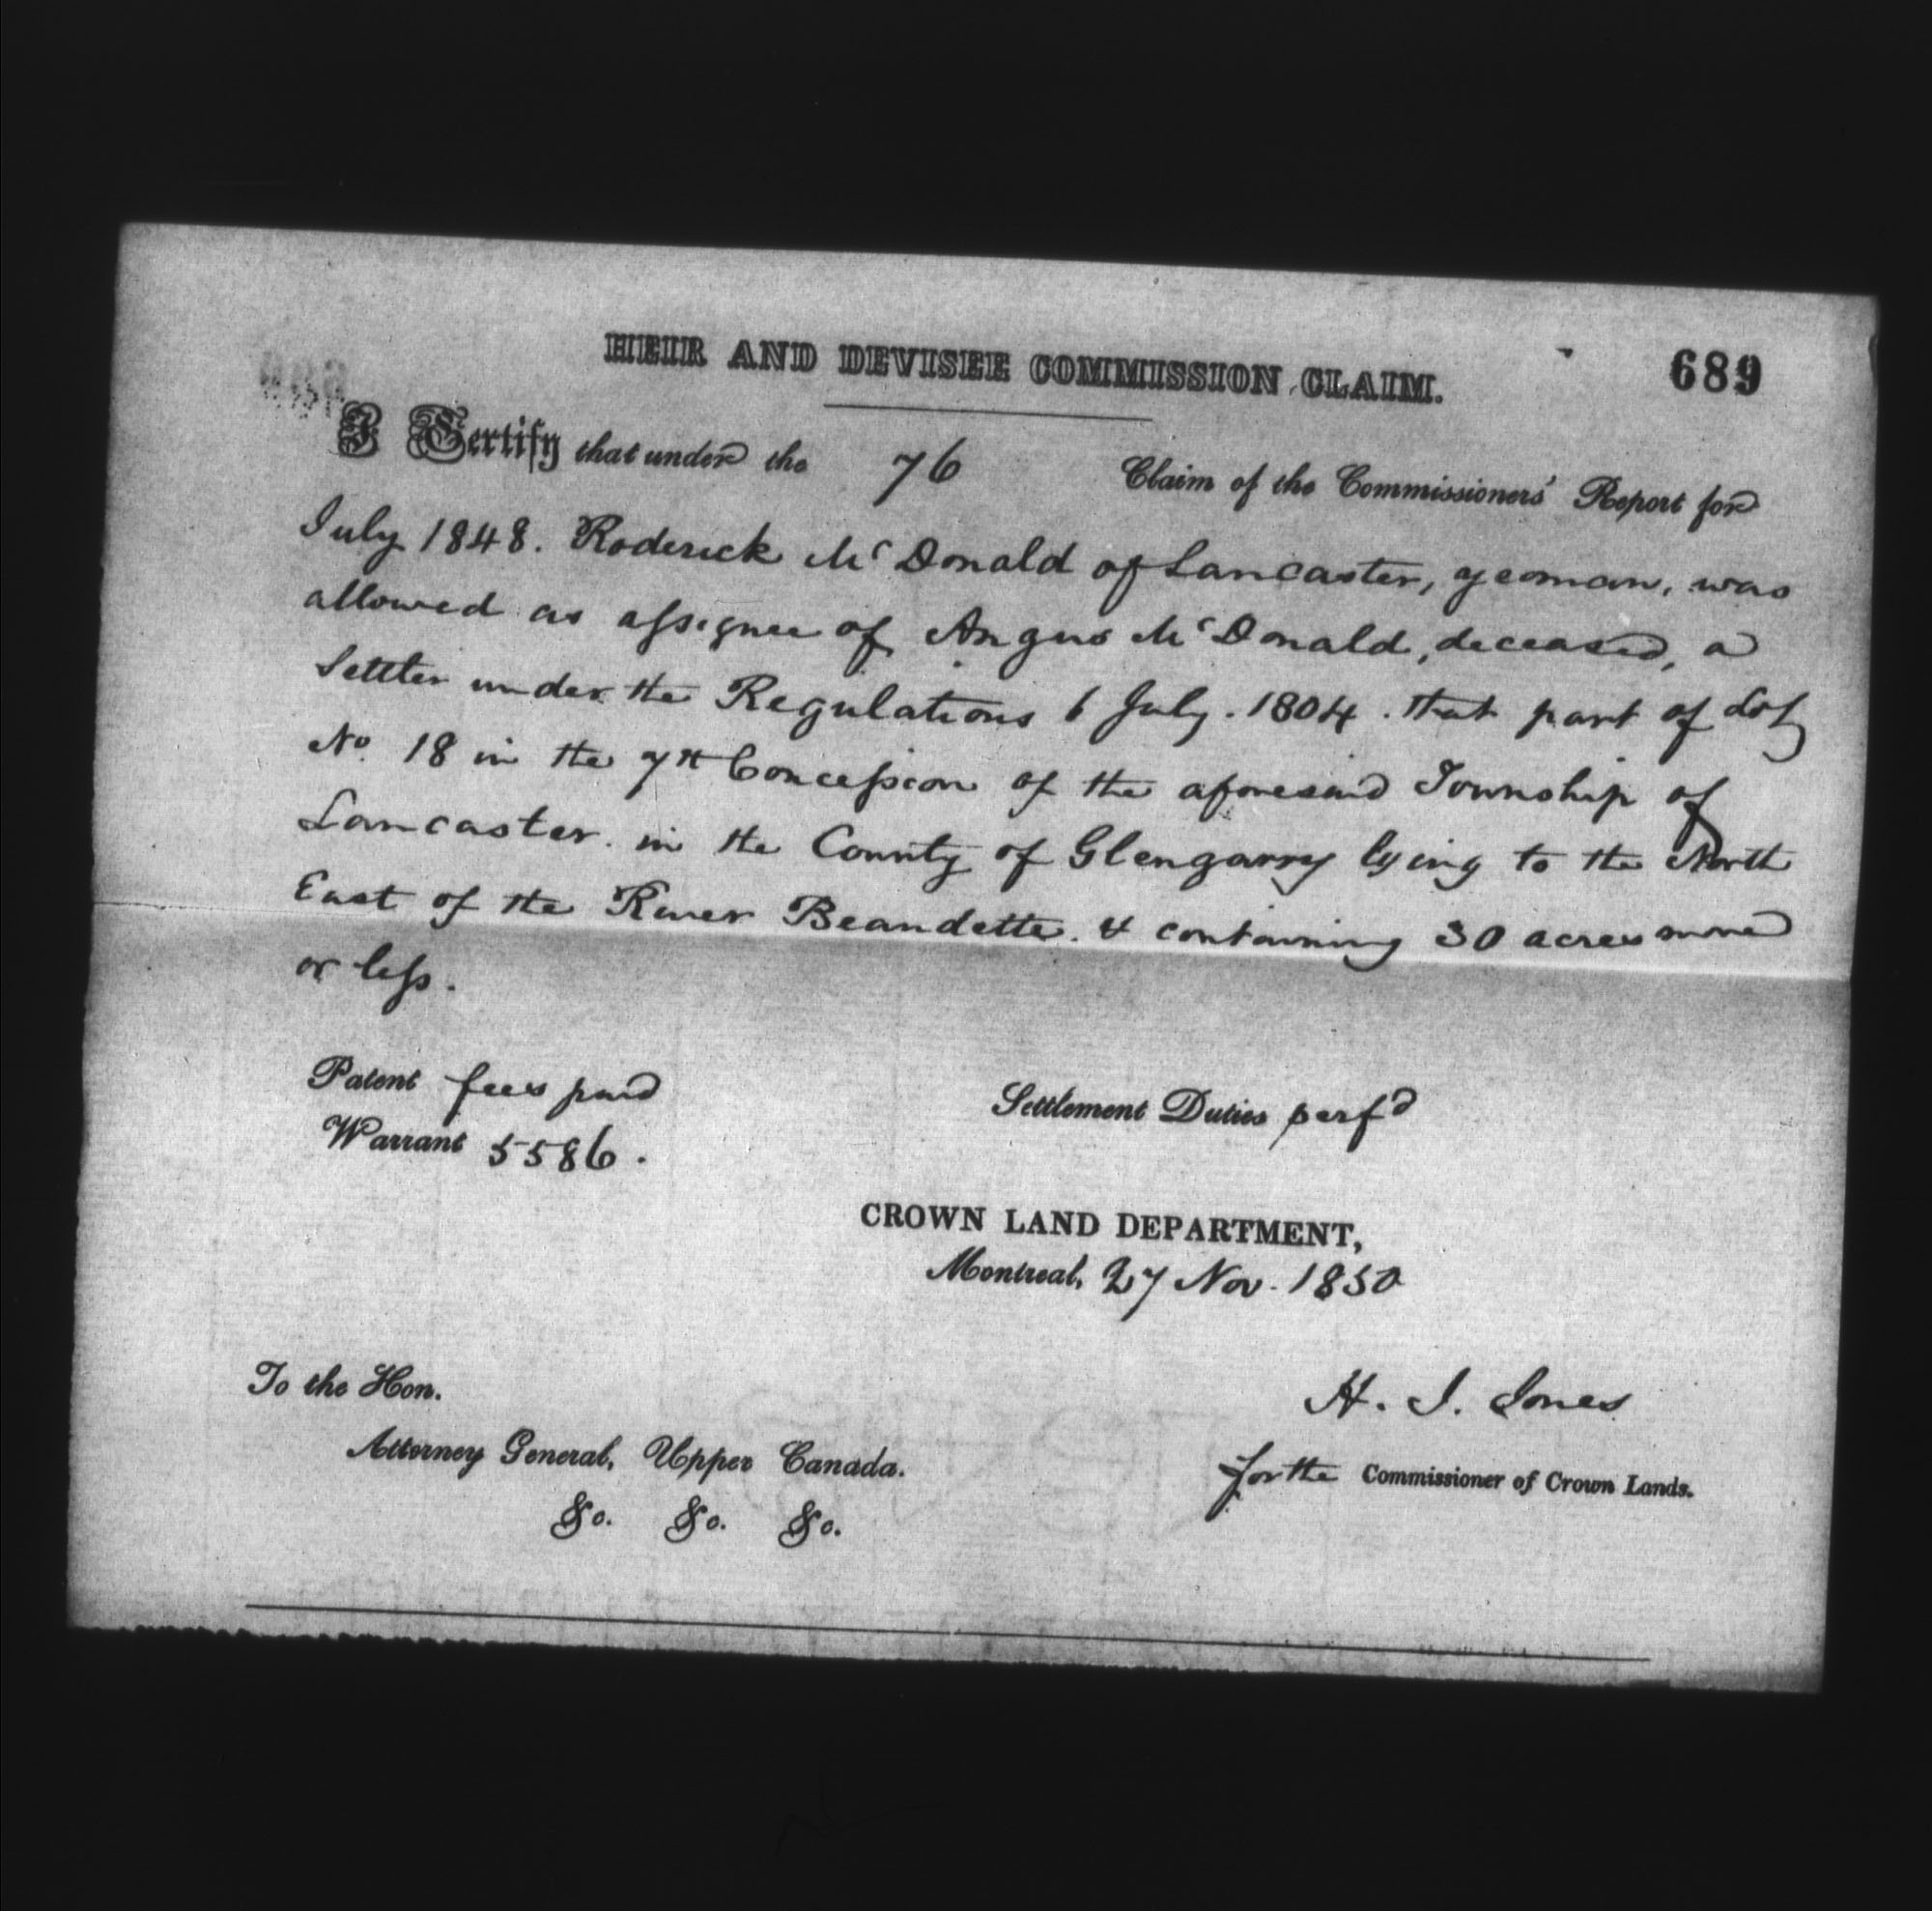 HEIR AND DEVISEE COMMISSION CLAIM.
689
I Certify that under the 76 Claim of the Commissioners' Report for
July 1848. Roderick McDonald of Lancaster, yeoman, was
allowed as assignee of Angus McDonald, deceased, a
Settler under the Regulations 6 July. 1804. that part of Lot
No. 18 in the 7th Concession of the aforesaid Township of
Lancaster. in the County of Glengarry lying to the North
East of the River Beaudette. & containing 30 acres more
or less.
Patent fees paid
Settlement Duties perfd
Warrant 5586.
CROWN LAND DEPARTMENT,
Montreal, 27 Nov. 1850
To the Hon.
H. J. Jones
Attorney General, Upper Canada.
for the Commissioner of Crown Lands.
&c. &c. &c.